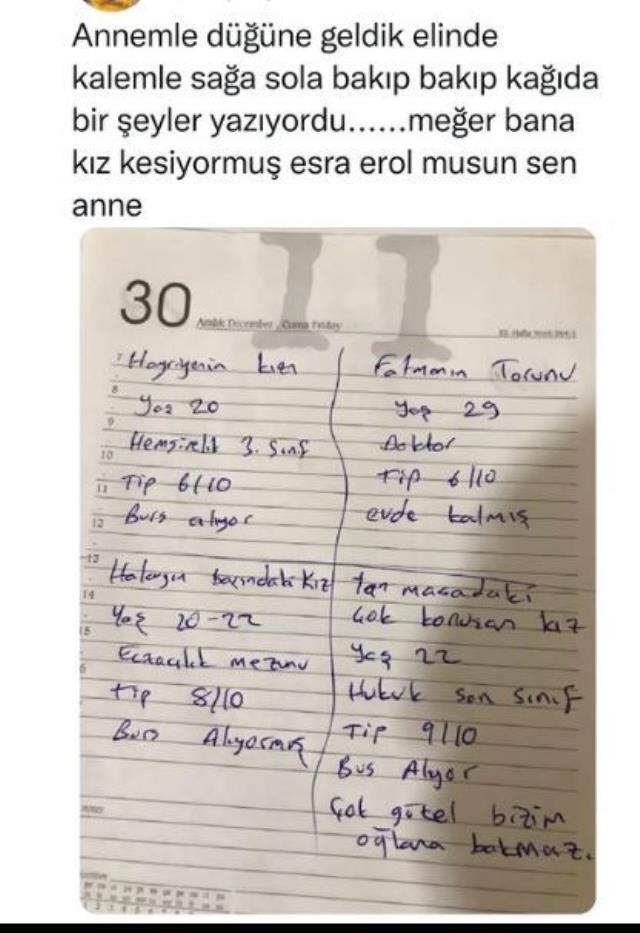 Annemle düğüne geldik elinde
kalemle sağa sola bakıp bakıp kağıda
bir şeyler yazıyordu......meğer bana
kız kesiyormuş esra erol musun sen
anne
11
30
Aralık December / Cuma Friday
7 Hayriyenin kızı
8
Yaş 20
9
Hemşirelik 3. Sınıf
10
11 Tip 6/10
12 Burs alıyor
Fatmanın Torunu
Yaş 29
Doktor
Tip 6/10
evde kalmış
13
Halayın başındaki Kız
14
Yaş 20-22
15
Eczacılık mezunu
Tip 8/10
Burs Alıyormuş
Yan masadaki
Çok konuşan kız
Yaş 22
Hukuk son sınıf
Tip 9/10
Bus Alıyor
Çok güzel bizim
oğlana bakmaz.